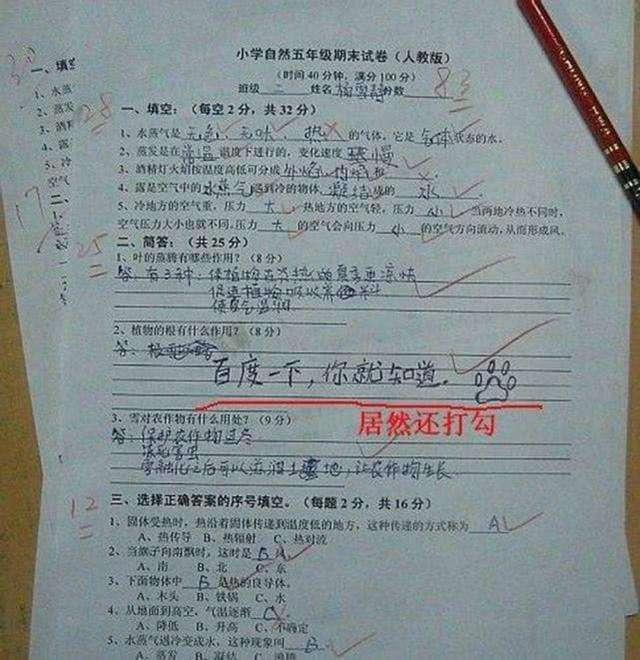 小学自然五年级期末试卷（人教版）
（时间40分钟，满分100分）
班级 二 姓名 分数 83
一、填空：（每空2分，共32分）
28
1、水蒸气是 无色 无味 热 的气体，它是 气体 状态的水。
2、蒸发是在 常温 温度下进行的，变化速度 缓慢
3、酒精灯火焰按温度高低可分成 外焰 内焰
4、露是空气中的 水蒸气 遇到冷的物体，凝结 成的 水
5、冷地方的空气重，压力 大 热地方的空气轻，压力 小 当两地冷热不同时，
空气压力大小也就不同，压力 大 的空气会向压力 小 的空气方向流动，从而形成风。
25
二、简答：（共25分）
1、叶的蒸腾有哪些作用？（8分）
答：有三种：保植物在炎热的夏季更凉快
促进植物吸收养料
使气温
2、植物的根有什么作用？（8分）
答：
百度一下，你就知道。
居然还打勾
3、雪对农作物有什么用处？（9分）
答：保护农作物过冬
冻死害虫
雪融化之后可以滋润土地，让农作物生长
12
三、选择正确答案的序号填空。（每题2分，共16分）
1、固体受热时，热沿着固体传递到温度低的地方，这种传递的方式称为 A
A、热传导 B、热辐射 C、热对流
2、当旗子向南飘时，这时是 B 风。
A、南 B、北 C、东
3、下面物体中 B 是热的良导体。
A、木头 B、铁锅 C、水
4、从地面到高空、气温逐渐 C
A、降低 B、升高 C、不确定
5、水蒸气遇冷变成水，这种现象叫 B
A、蒸发 B、凝结 C、沸腾